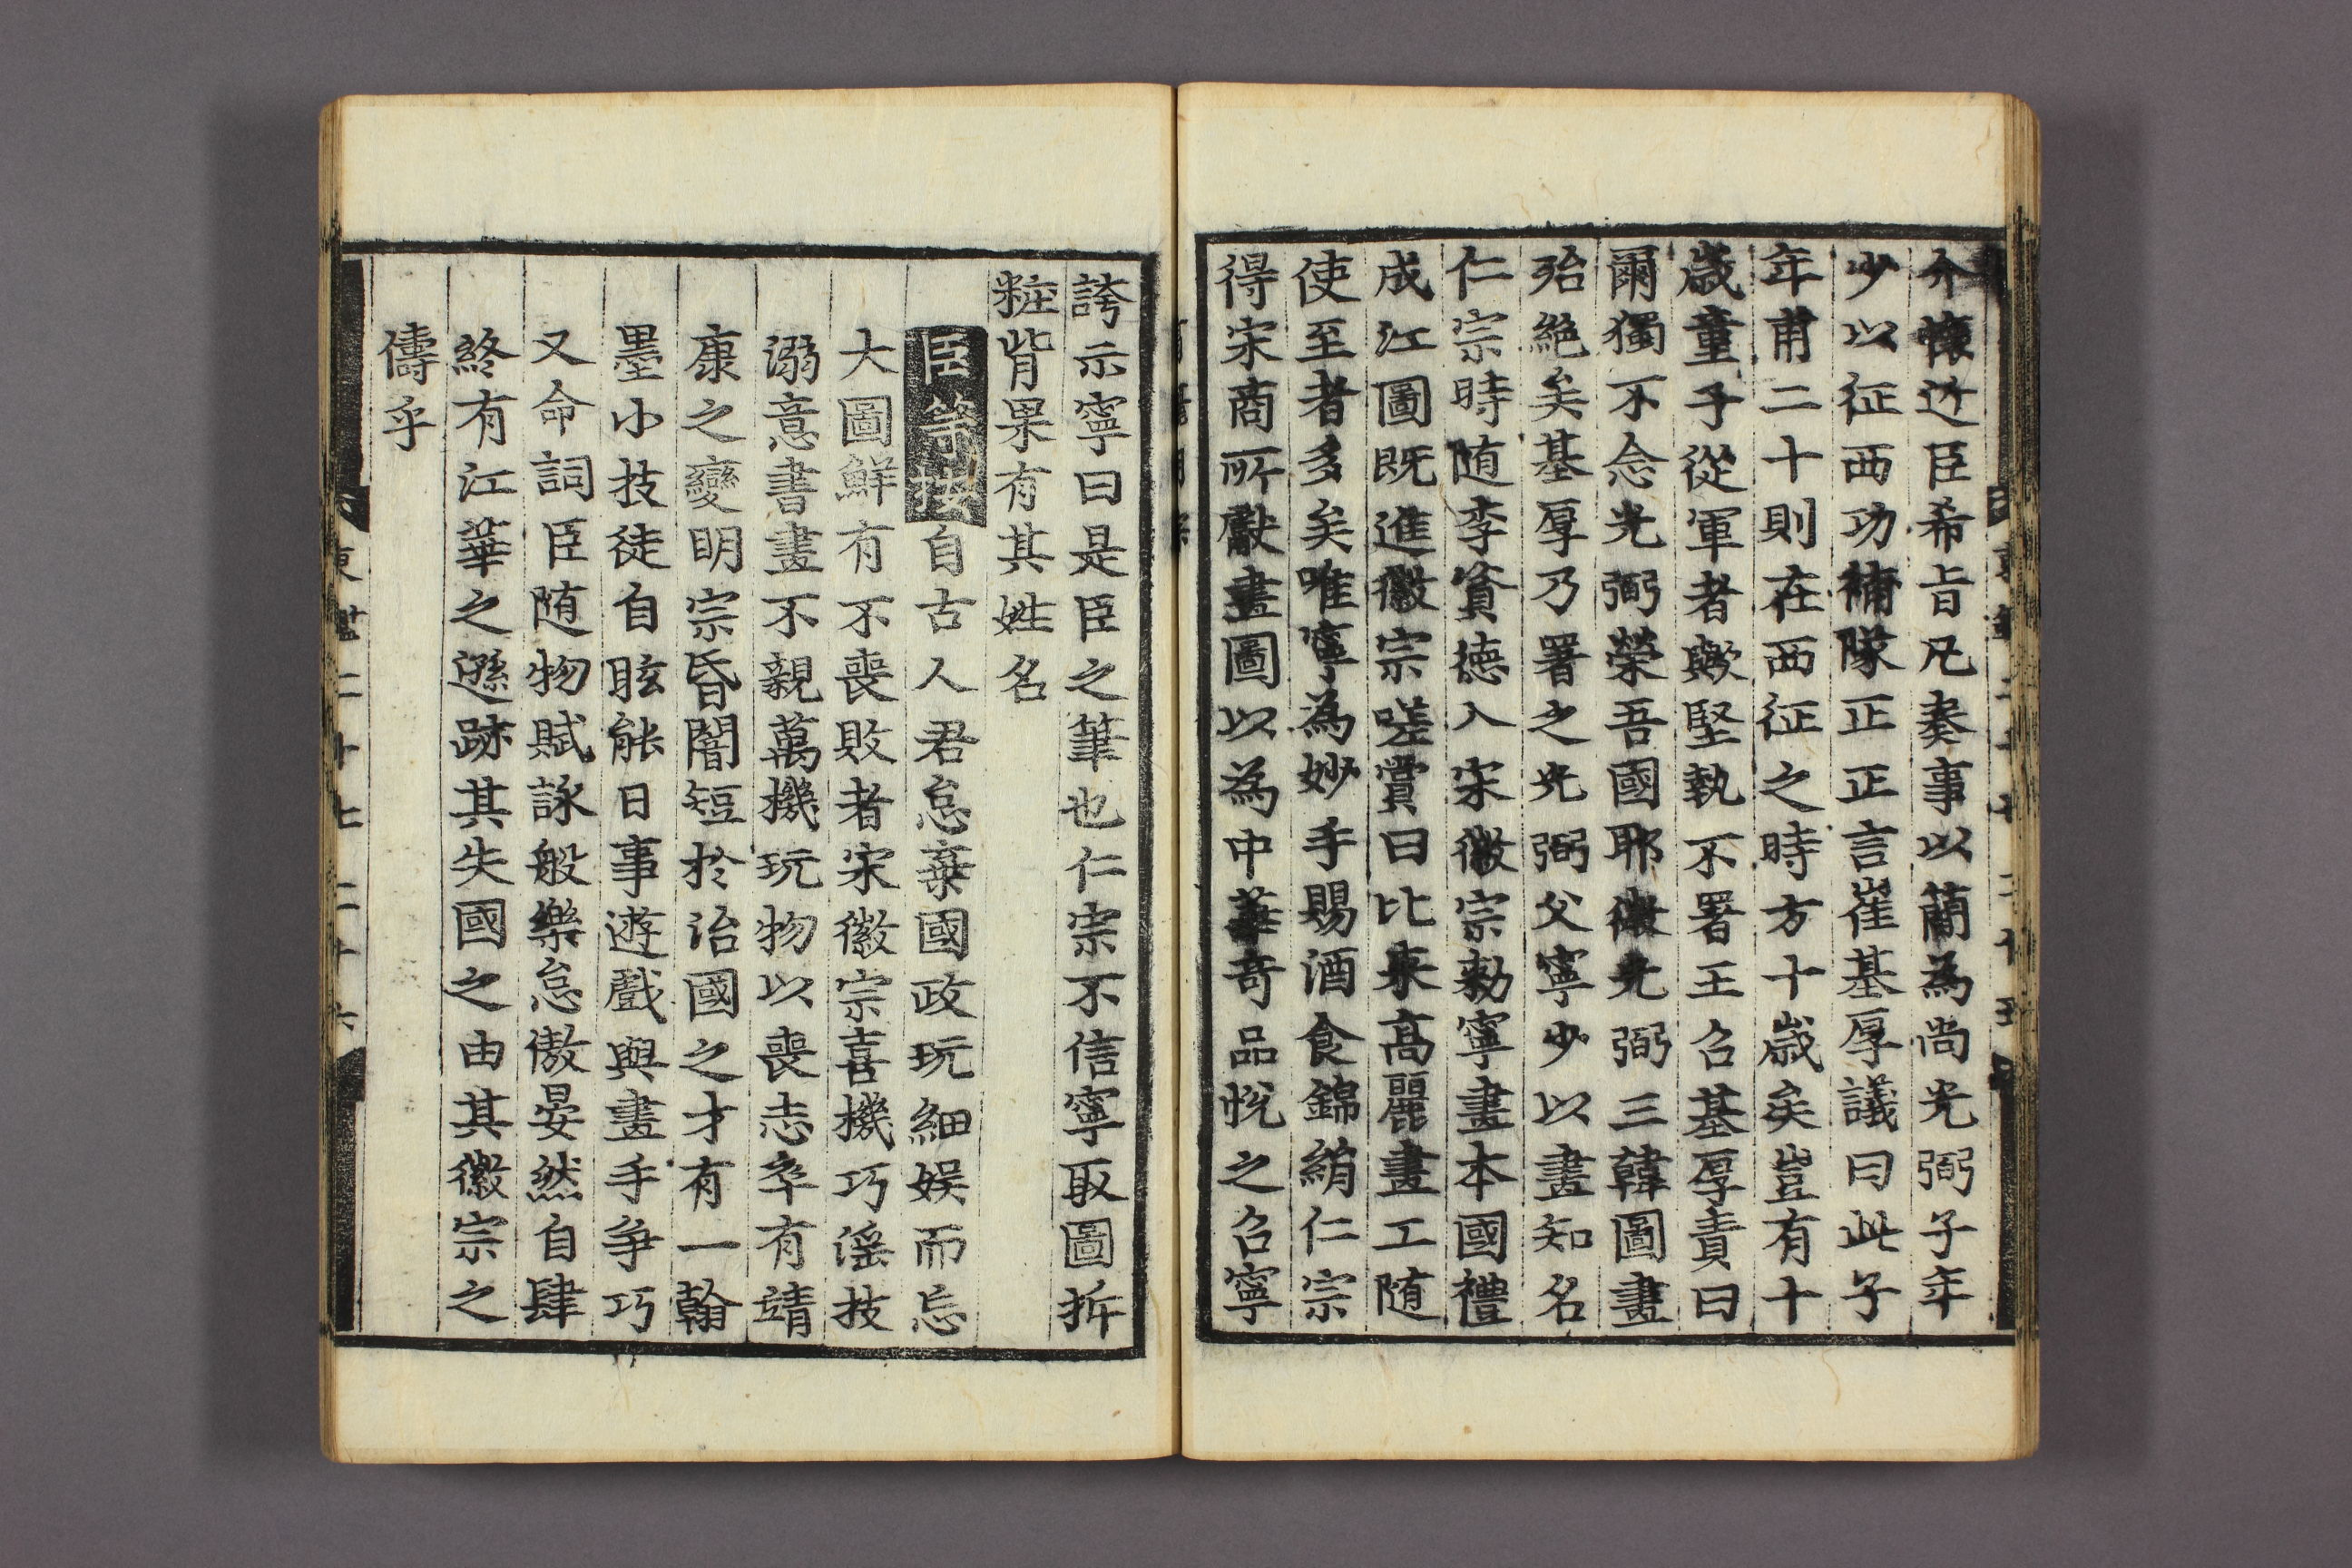 介懐近臣希旨凡奏事以蘭為尚光弼子年
少以征西功補隊正正言崔基厚議曰此子
年甫二十則在西征之時方十歲矣豈有十
歲童子從軍者歟堅執不署王召基厚責曰
爾獨不念光弼榮吾國耶微光弼三韓圖畫
殆絕矣基厚乃署之光弼父寧少以畫知名
仁宗時随李資德入宋徽宗勑寧畫本國禮
成江圖既進徽宗嗟賞曰比来髙麗畫工随
使至者多矣唯寧為妙手賜酒食錦絹仁宗
得宋商所獻畫圖以為中華奇品悅之召寧
誇示寧曰是臣之筆也仁宗不信寧取圖拆
粧背果有其姓名
臣等按自古人君怠棄國政玩細娛而忘
大圖鮮有不喪敗者宋徽宗喜機巧滛技
溺意書畫不親萬機玩物以喪志卒有靖
康之變明宗昏闇短於治國之才有一翰
墨小技徒自眩能日事遊戲與畫手爭巧
又命詞臣随物賦詠般樂怠傲晏然自肆
終有江華之遜跡其失國之由其徽宗之
儔乎
東 二十七 二十六